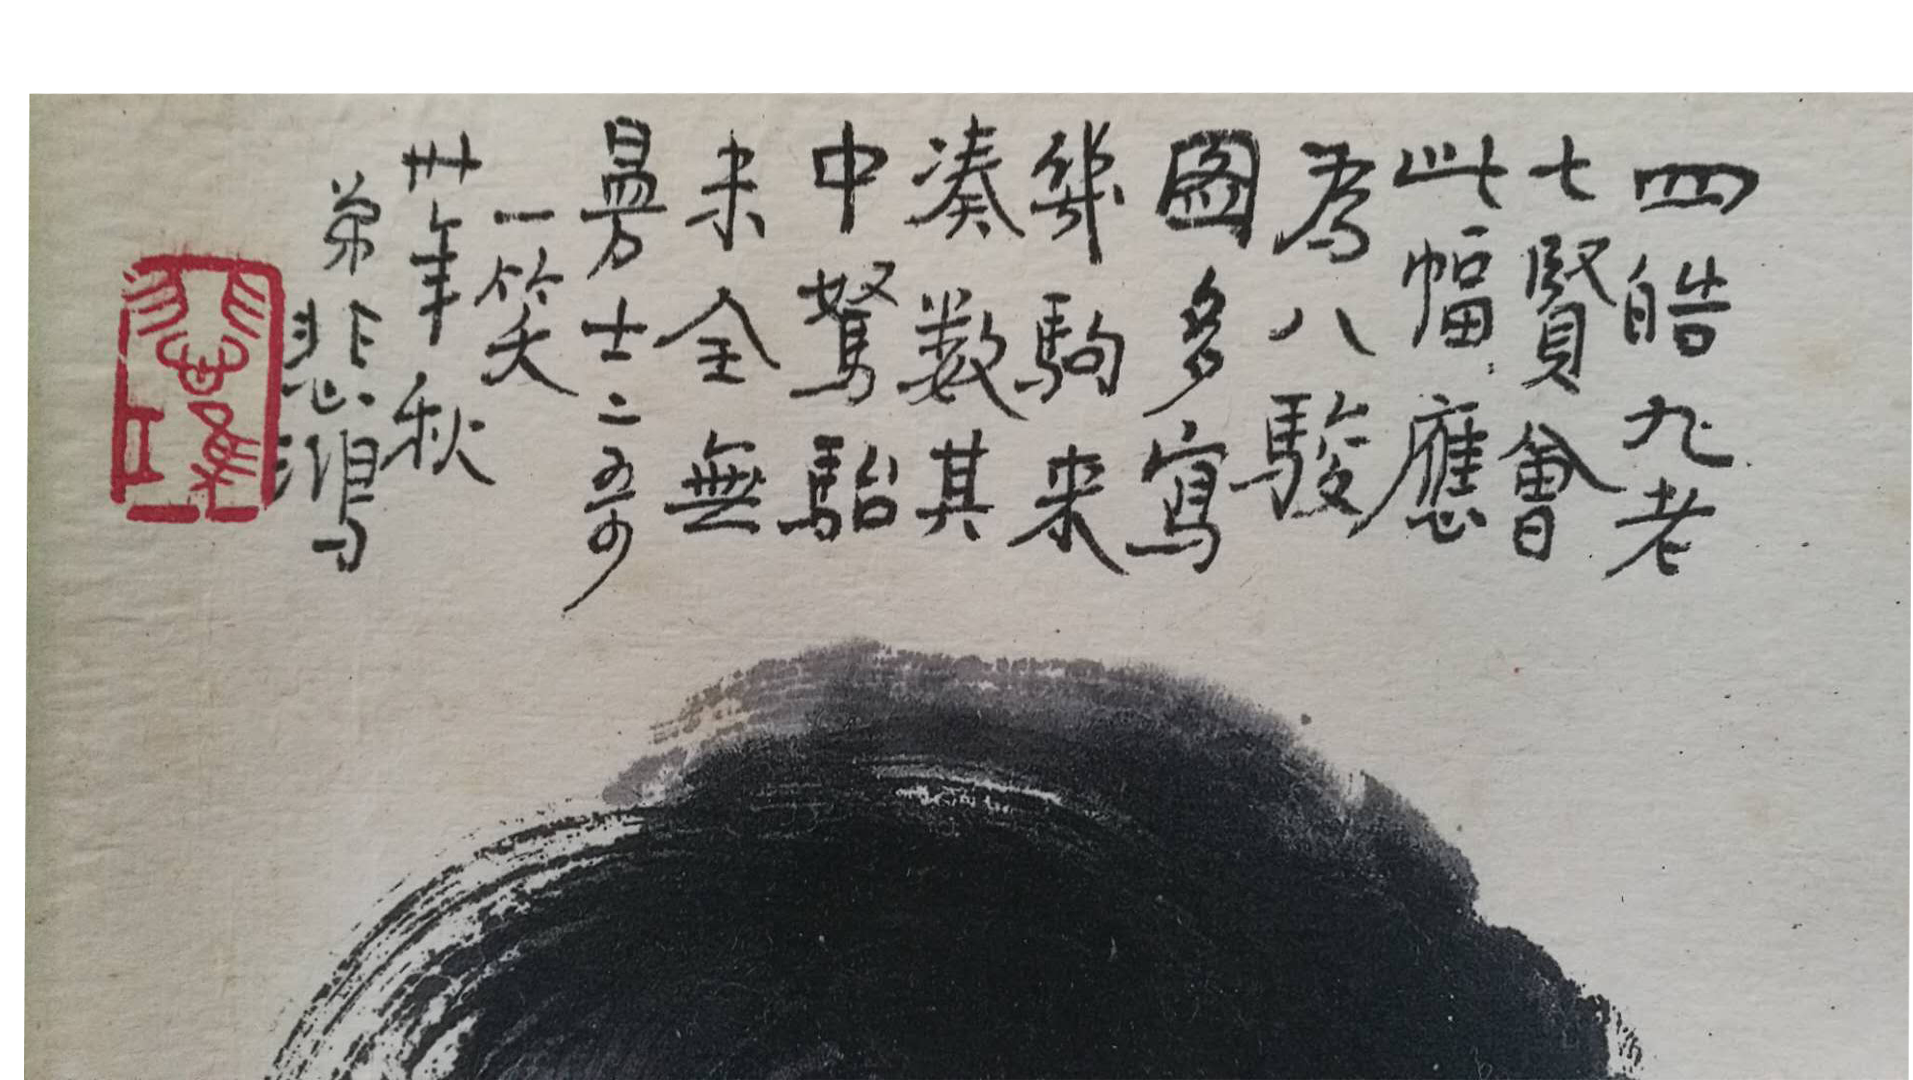 四皓九老
七賢會
此幅應
為八駿
圖多寫
幾駒来
凑数其
中駑駘
未全無
曼士二哥
一笑
卅年秋
弟悲鴻